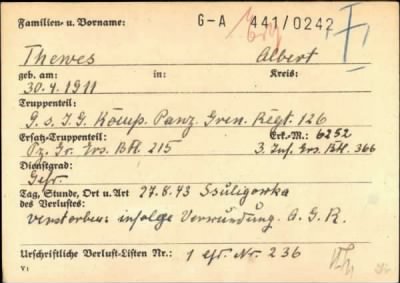 Familien- u. Vorname: G-A 441/0242
Thewes Albert
geb. am: in: Kreis:
30.4.1911
Truppenteil:
G. s. I.G. Komp. Panz. Gren. Regt. 126
Ersatz-Truppenteil: Erk.-M.: 6252
Pz. Gr. Ers. Btl. 215 3. Inf. Ers. Btl. 366
Dienstgrad:
Gefr.
Tag, Stunde, Ort u. Art 27.8.43 Ssuligowka
des Verlustes:
verstorben: infolge Verwundung. A.G.R.
Urschriftliche Verlust-Listen Nr.: 1 lfd. Nr. 236
V: